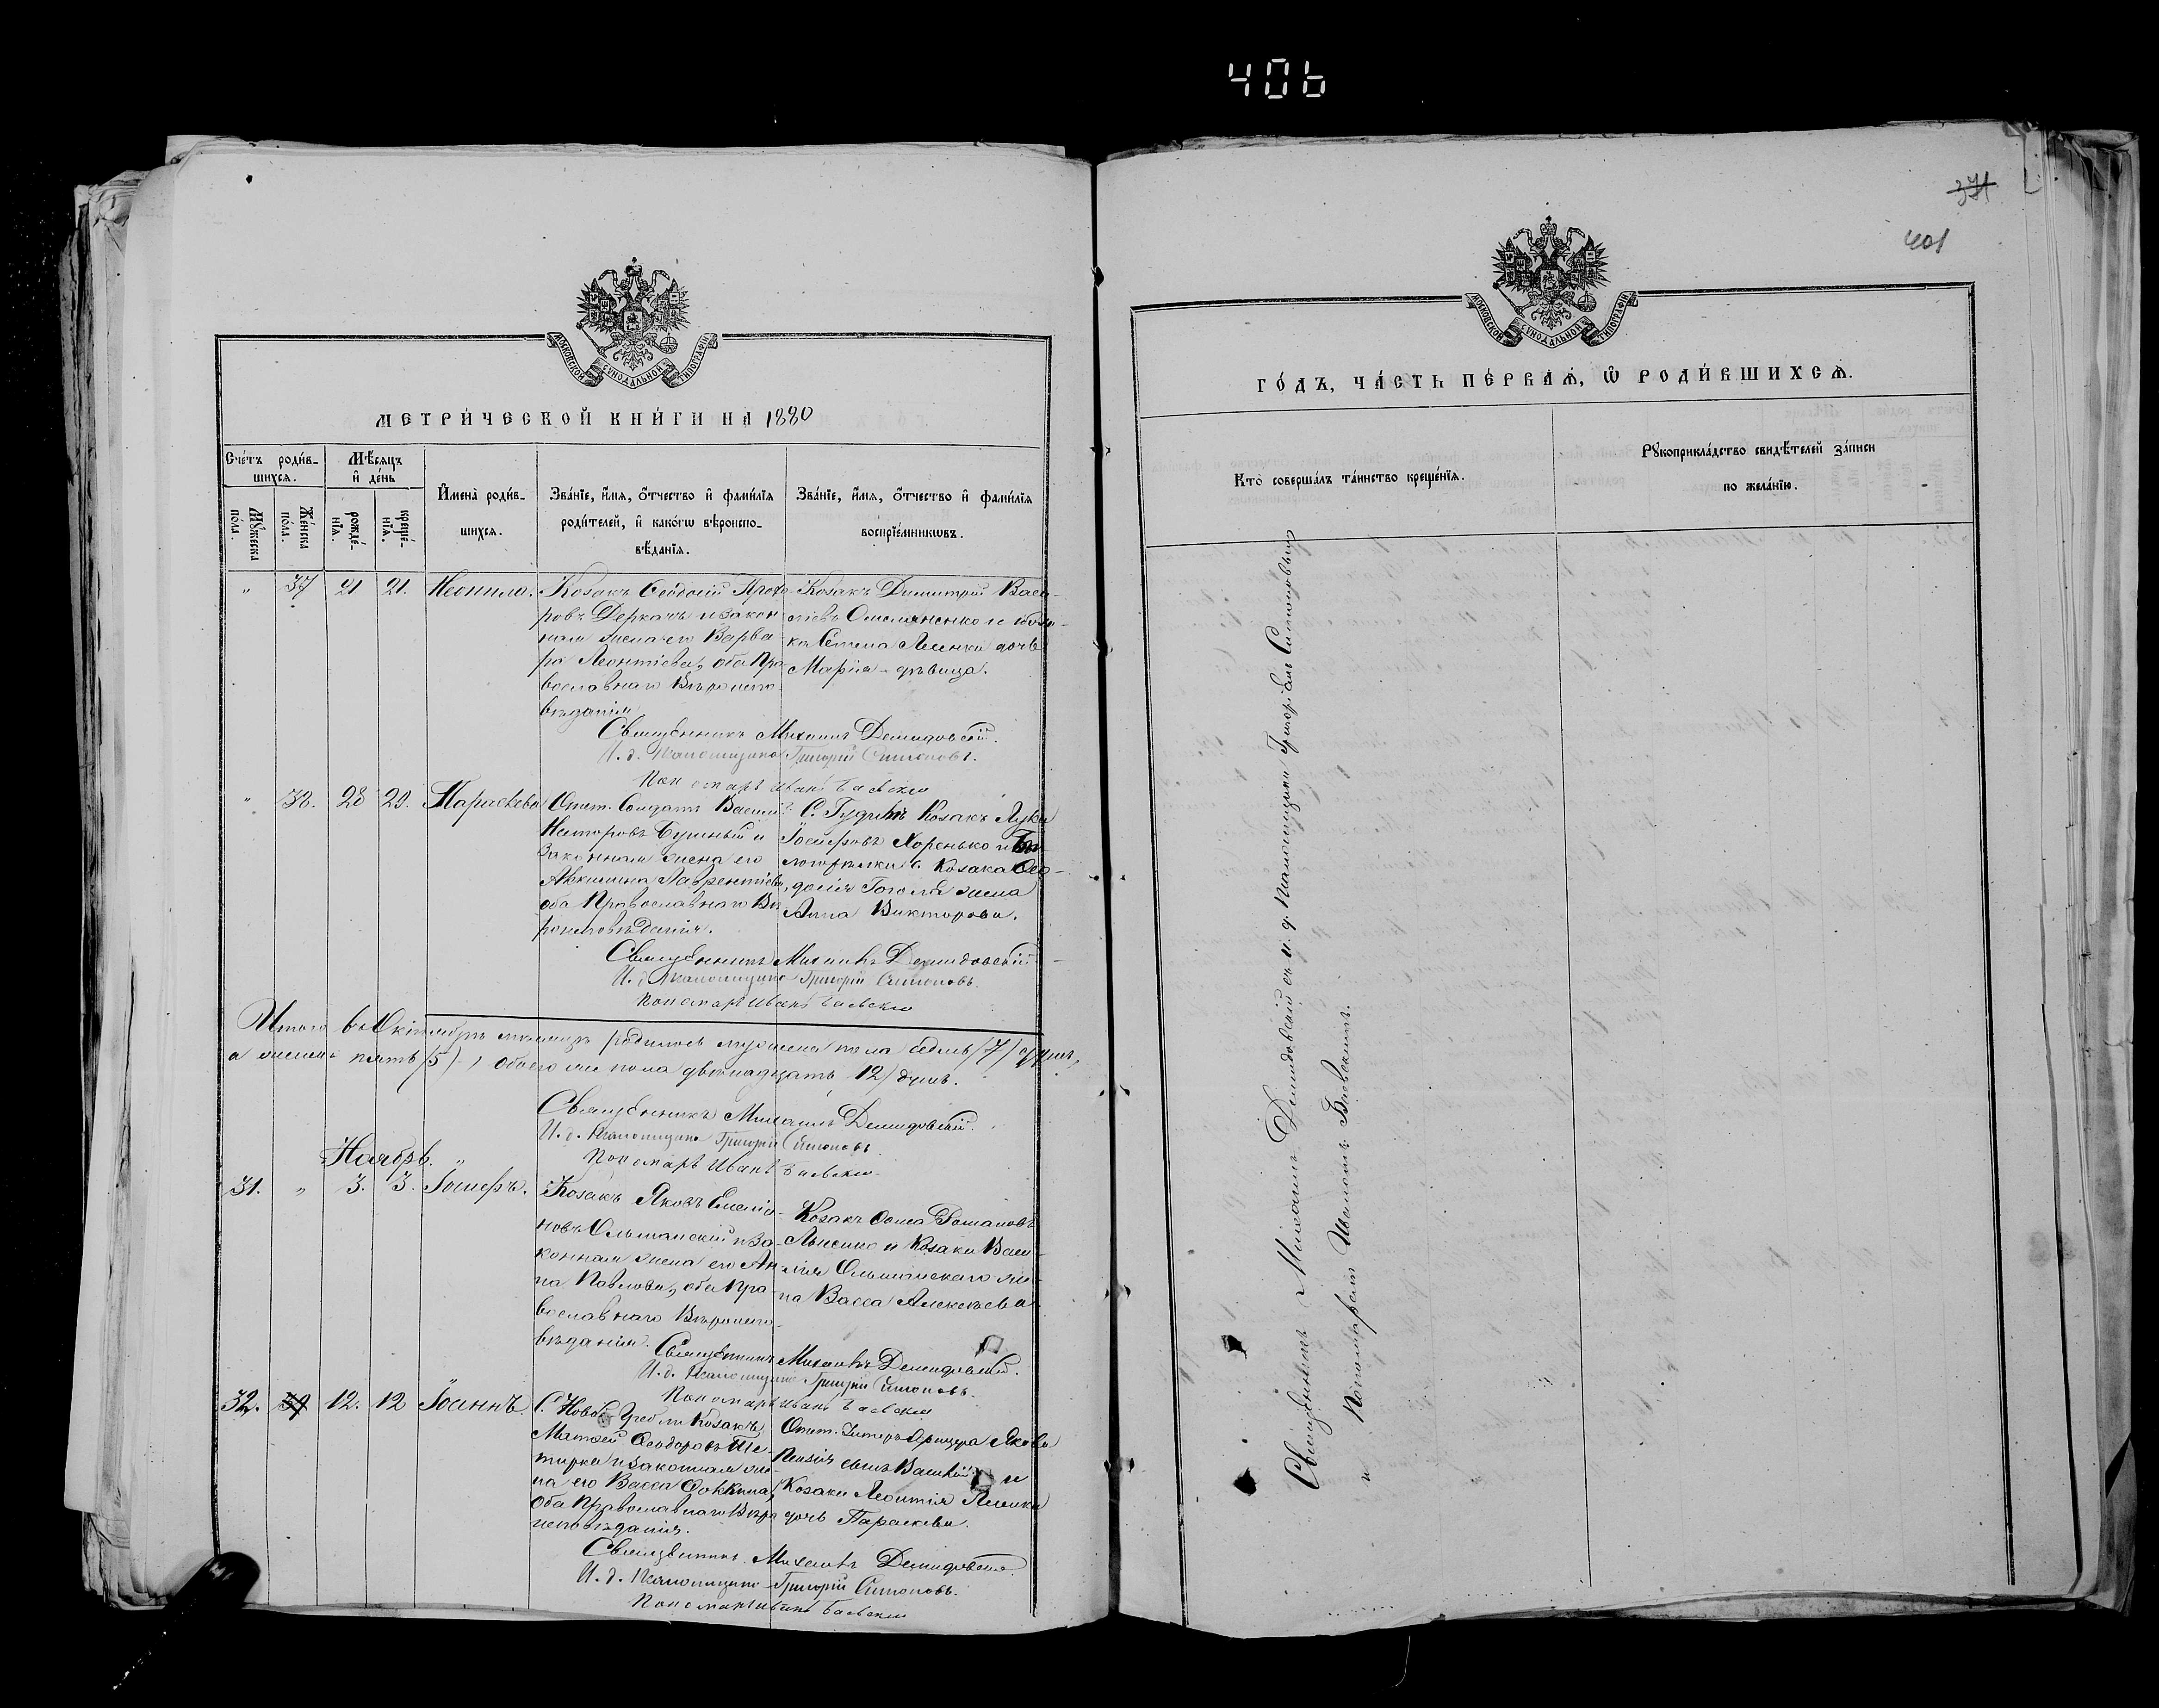 406
371
401
МОСКОВСКОЙ СѴНОДАЛЬНОЙ ТИПОГРАФІИ
МЕТРИ́ЧЕСКОЙ КНИ́ГИ НА 1880
Сче́тъ роди́в-
шихсѧ.
Мѣ́сѧцъ
и҆ де́нь
Мꙋ́жеска
по́ла.
Же́нска
по́ла.
рожде́-
нїѧ.
креще́-
нїѧ.
И҆мена̀ роди́в-
шихсѧ.
Зва́нїе, и҆́мѧ, ѻ҆́тчество и҆ фами́лїѧ
роди́телей, и҆ како́гѡ вѣроиспо-
вѣ́данїѧ.
Зва́нїе, и҆́мѧ, ѻ҆́тчество и҆ фами́лїѧ
воспрїе́мникѡвъ.
" 37 21 21. Неонила.
Козакъ Ѳеодосій Прохо-
ровъ Деркачъ и закон
ная жена его Варва-
ра Леонтіева, оба Пра
вославнаго Вѣроиспо-
вѣданія
Козакъ Димитрій Васи-
ліевъ Омельяненко и Коза-
ка дочь
Марія - дѣвица.
Священникъ Михаилъ Демидовскій.
И. д. Псаломщика Григорій Симоновъ.
Пономарь Иванъ Баевскій
" 38. 28 29. Параскева
Отст. Солдатъ Василій
Несторовъ и
Законная жена его
Акилина Лаврентіева,
оба Православнаго Вѣ
роисповѣданія.
Козакъ Лука
Іосифовъ Хоренько и
с. Козака Ѳео-
досія Гоголя жена
Анна Викторова.
Священникъ Михаилъ Демидовскій
И. д. Псаломщика Григорій Симоновъ.
Пономарь Иванъ Баевскій
Итого въ Октябрѣ мѣсяцѣ родилось мужеска пола седмь /7/ душъ,
а женска пять /5/, обоего же пола двѣнадцать 12/ душъ.
Священникъ Михаилъ Демидовскій.
И. д. Псаломщика Григорій Симоновъ
Пономарь Иванъ Баевскій
Ноябрь. "
31. " 3. 3. Іосифъ.
Козакъ Яковъ Емелія-
новъ Ольшанскій и За-
конная жена его Ан
на Павлова, оба Пра-
вославнаго Вѣроиспо-
вѣданія.
Козакъ Ѳома Романовъ
и Козака Васи-
лія Ольшанскаго же-
на Васса Алексѣева
Священникъ Михаилъ Демидовскій.
И. д. Псаломщика Григорій Симоновъ.
Пономарь Иванъ Баевскій
32. 12. 12 Іоаннъ.
С. Новой Гребли Козакъ
Матѳей Ѳеодоровъ
и законная же-
на его Васса Ѳокина,
Оба Православнаго Вѣро
исповѣданія.
Отст. Якова
сынъ Василій и
Козака Леонтія
дочь Параскева.
Священникъ Михаилъ Демидовскій
И. д. Псаломщика Григорій Симоновъ.
Пономарь Иванъ Баевскій
МОСКОВСКОЙ СѴНОДАЛЬНОЙ ТИПОГРАФІИ
ГО́ДЪ, ЧА́СТЬ ПЕ́РВАѦ, Ѽ РОДИ́ВШИХСѦ.
Кто̀ соверша́лъ та́инство креще́нїѧ.
Рꙋкоприкла́дство свидѣ́телей за́писи
по жела́нїю.
Священникъ Михаилъ Демидовскій съ и. д. Псаломщика Григоріемъ Симоновымъ
и Пономаремъ Иваномъ Баевскимъ.